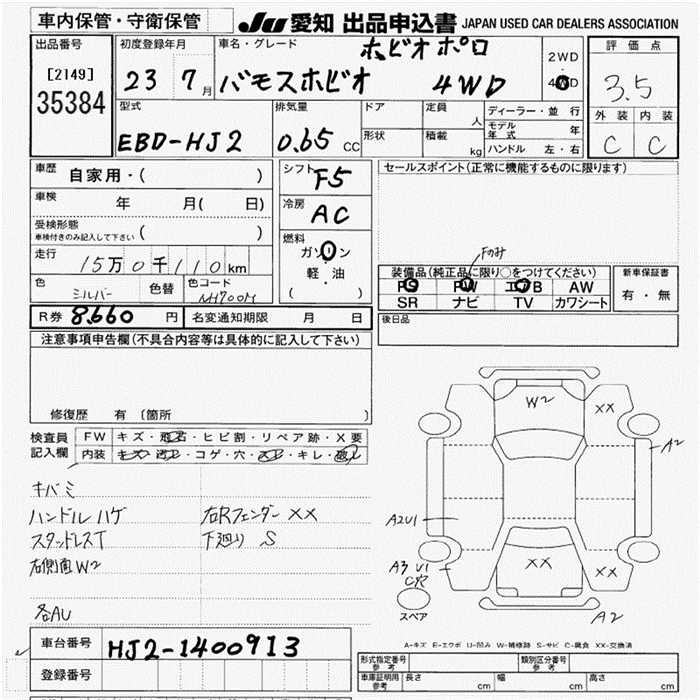 車内保管・守衛保管
JU 愛知 出品申込書 JAPAN USED CAR DEALERS ASSOCIATION
出品番号
[2149]
35384
初度登録年月
23 7 月
車名・グレード
ホビオ ポロ
バモスホビオ 4WD
2WD
・
4WD
評価点
3.5
外装 内装
C C
型式
EBD-HJ2
排気量
0.65 CC
ドア
形状
定員
人
積載
kg
ディーラー・並行
モデル年式 年
ハンドル 左・右
車歴 自家用・( )
車検 年 月( 日)
受検形態
車検付きのみ記入して下さい ( )
走行 15万0千110km
色 シルバー 色替 色コード NH700M
シフト F5
冷房 AC
燃料
ガソリン
軽・油
( )
セールスポイント(正常に機能するものに限ります)
Fのみ
装備品(純正品に限り○をつけてください)
PS PW エアB AW
SR ナビ TV カワシート
新車保証書
有・無
R券 8,660 円 名変通知期限 月 日
後日品
注意事項申告欄(不具合内容等は具体的に記入して下さい)
修復歴 有 〔箇所 〕
検査員記入欄
FW キズ・飛石・ヒビ割・リペア跡・X要
内装 キズ・汚れ・コゲ・穴・スレ・キレ・破れ
キバミ
ハンドルハゲ 右Rフェンダー XX
スタッドレスT 下廻り S
右側面W2
各AU
W2
XX
A2
A2U1
A3 U1
XX
XX
スペア
A2
A-キズ E-エクボ U-凹み W-補修跡 S-サビ C-腐食 XX-交換済
車台番号 HJ2-1400913
登録番号
形式指定番号
参考
類別区分番号
参考
車庫証明用
参考
長さ cm 幅 cm 高さ cm